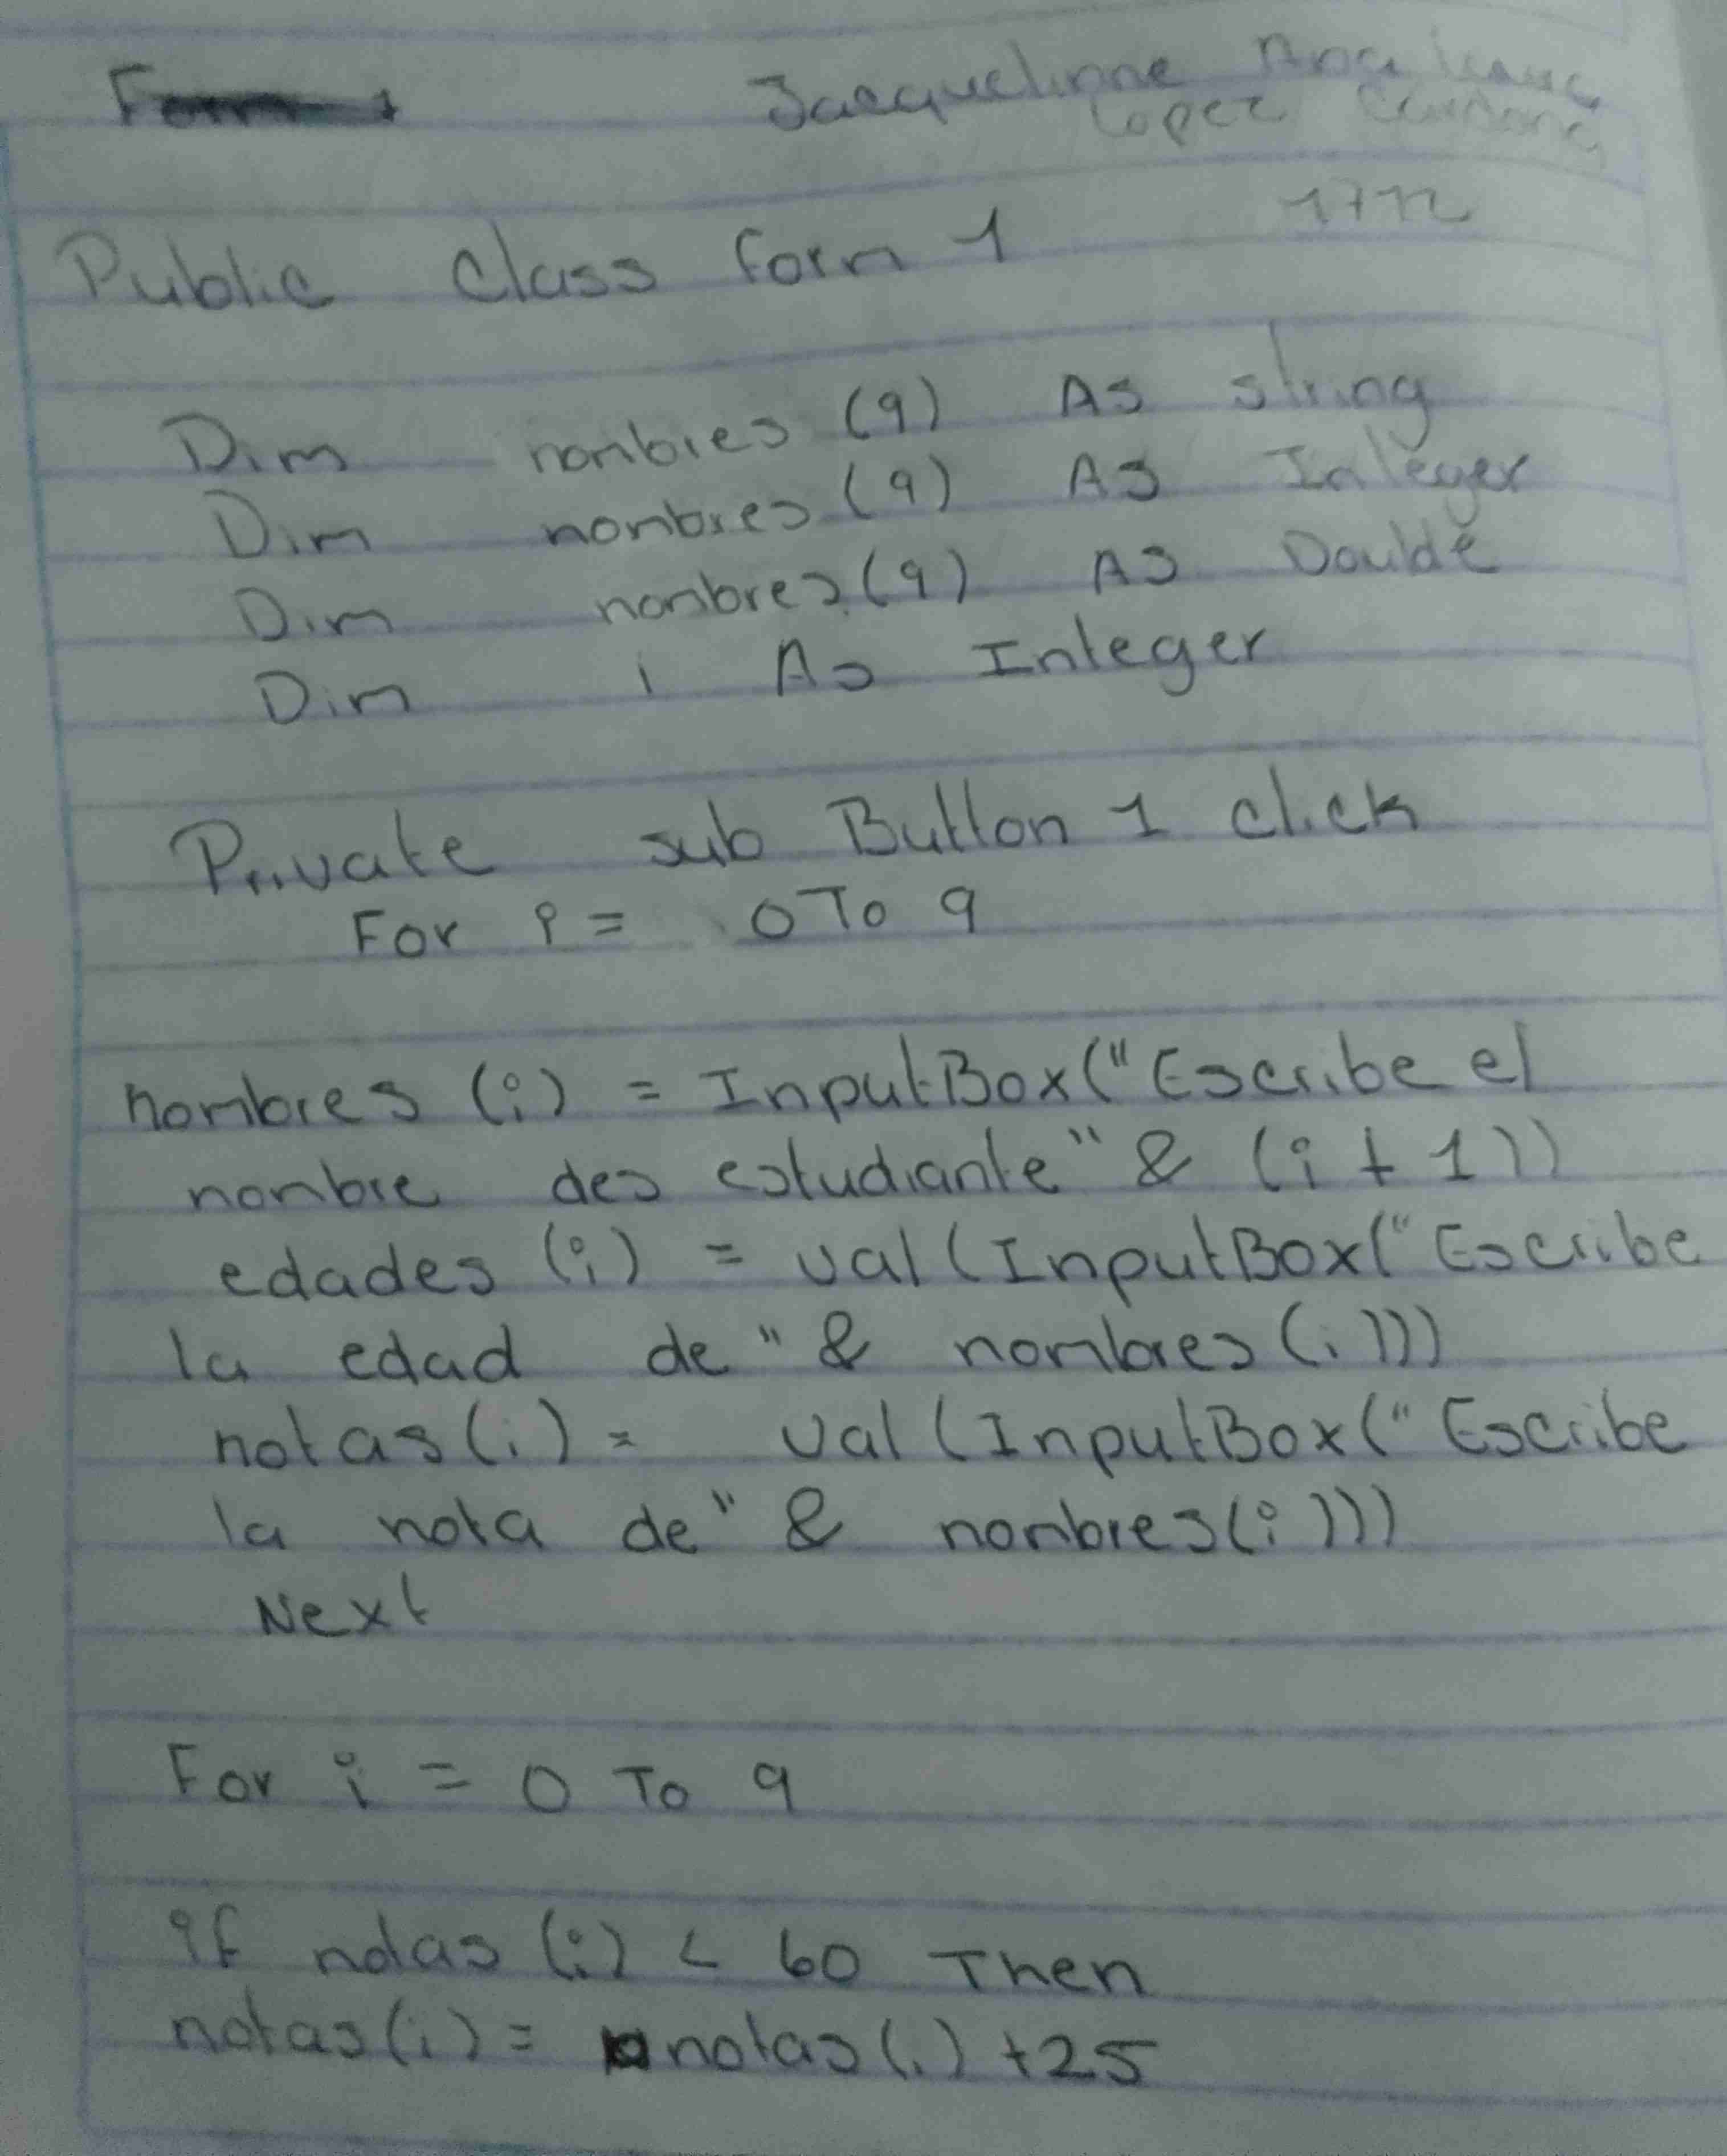 Jacquelinne
Lopez
1712
Public Class form 1
Dim nombres (9) As string
Dim nombres (9) As Integer
Dim nombres (9) As Double
Dim i As Integer
Private sub Button 1 click
For i = 0 To 9
nombres (i) = InputBox("Escribe el
nombre des estudiante" & (i + 1))
edades (i) = val(InputBox("Escribe
la edad de" & nombres(i)))
notas(i) = val(InputBox("Escribe
la nota de" & nombres(i)))
Next
For i = 0 To 9
if notas (i) < 60 Then
notas(i) = notas(i) +25